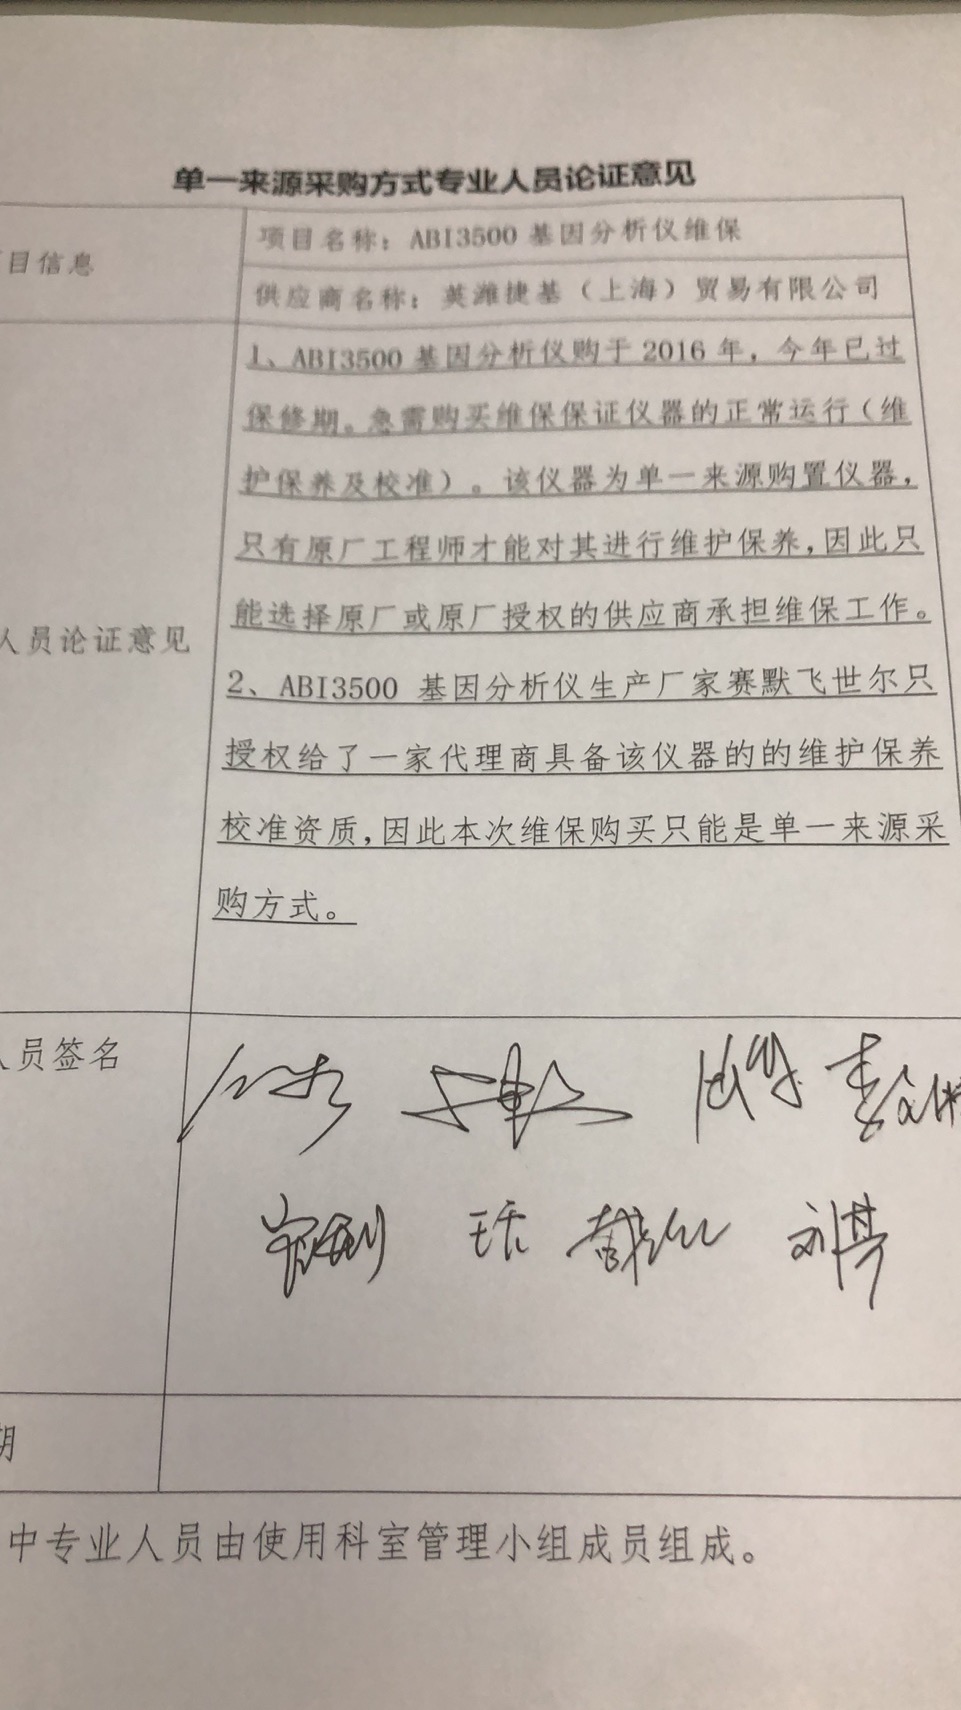 单一来源采购方式专业人员论证意见
目信息
项目名称：ABI3500 基因分析仪维保
供应商名称：英潍捷基（上海）贸易有限公司
人员论证意见
1、ABI3500 基因分析仪购于 2016 年，今年已过
保修期。急需购买维保保证仪器的正常运行（维
护保养及校准）。该仪器为单一来源购置仪器，
只有原厂工程师才能对其进行维护保养，因此只
能选择原厂或原厂授权的供应商承担维保工作。
2、ABI3500 基因分析仪生产厂家赛默飞世尔只
授权给了一家代理商具备该仪器的的维护保养
校准资质，因此本次维保购买只能是单一来源采
购方式。
人员签名
期
中专业人员由使用科室管理小组成员组成。